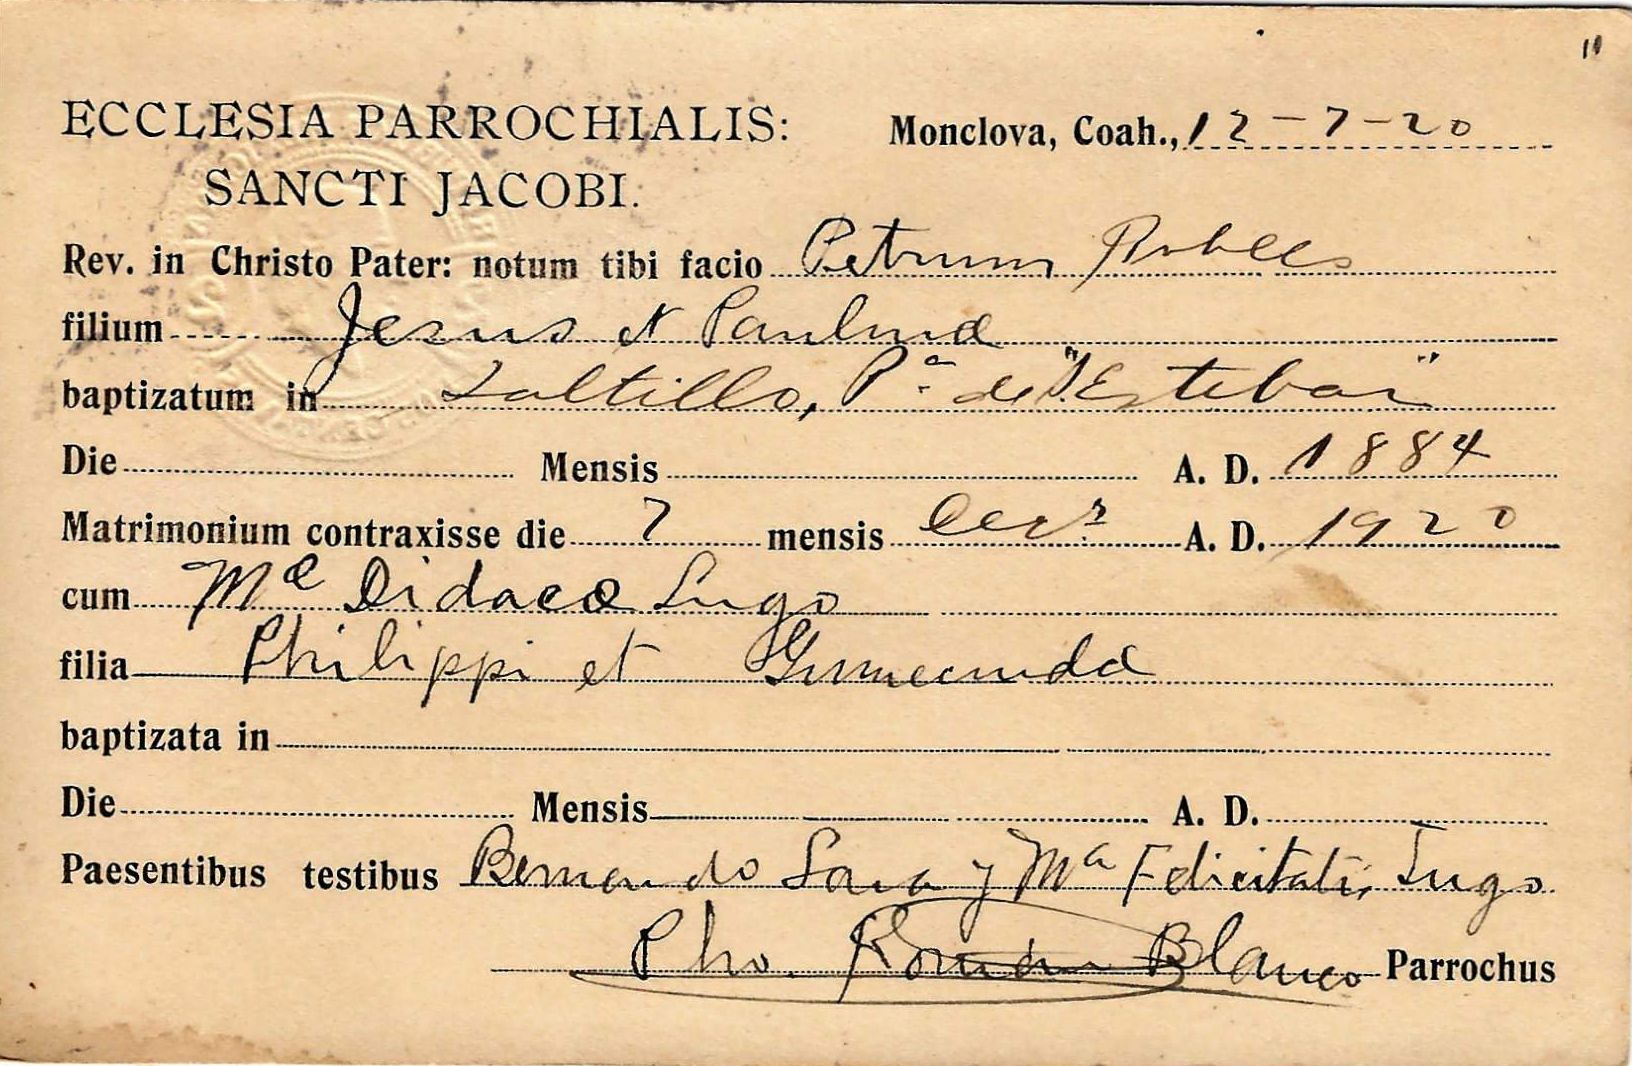 ECCLESIA PARROCHIALIS: Monclova, Coah., 12-7-20
SANCTI JACOBI.
Rev. in Christo Pater: notum tibi facio Petrum Robles
filium Jesus et Paulina
baptizatum in Saltillo, Pa. de "S. Esteban"
Die Mensis A. D. 1884
Matrimonium contraxisse die 7 mensis A. D. 1920
cum Ma Didaca Lugo
filia Philippi et
baptizata in
Die Mensis A. D.
Paesentibus testibus Bernardo y Ma Felicitatis Lugo
Pbo. Román Blanco Parrochus